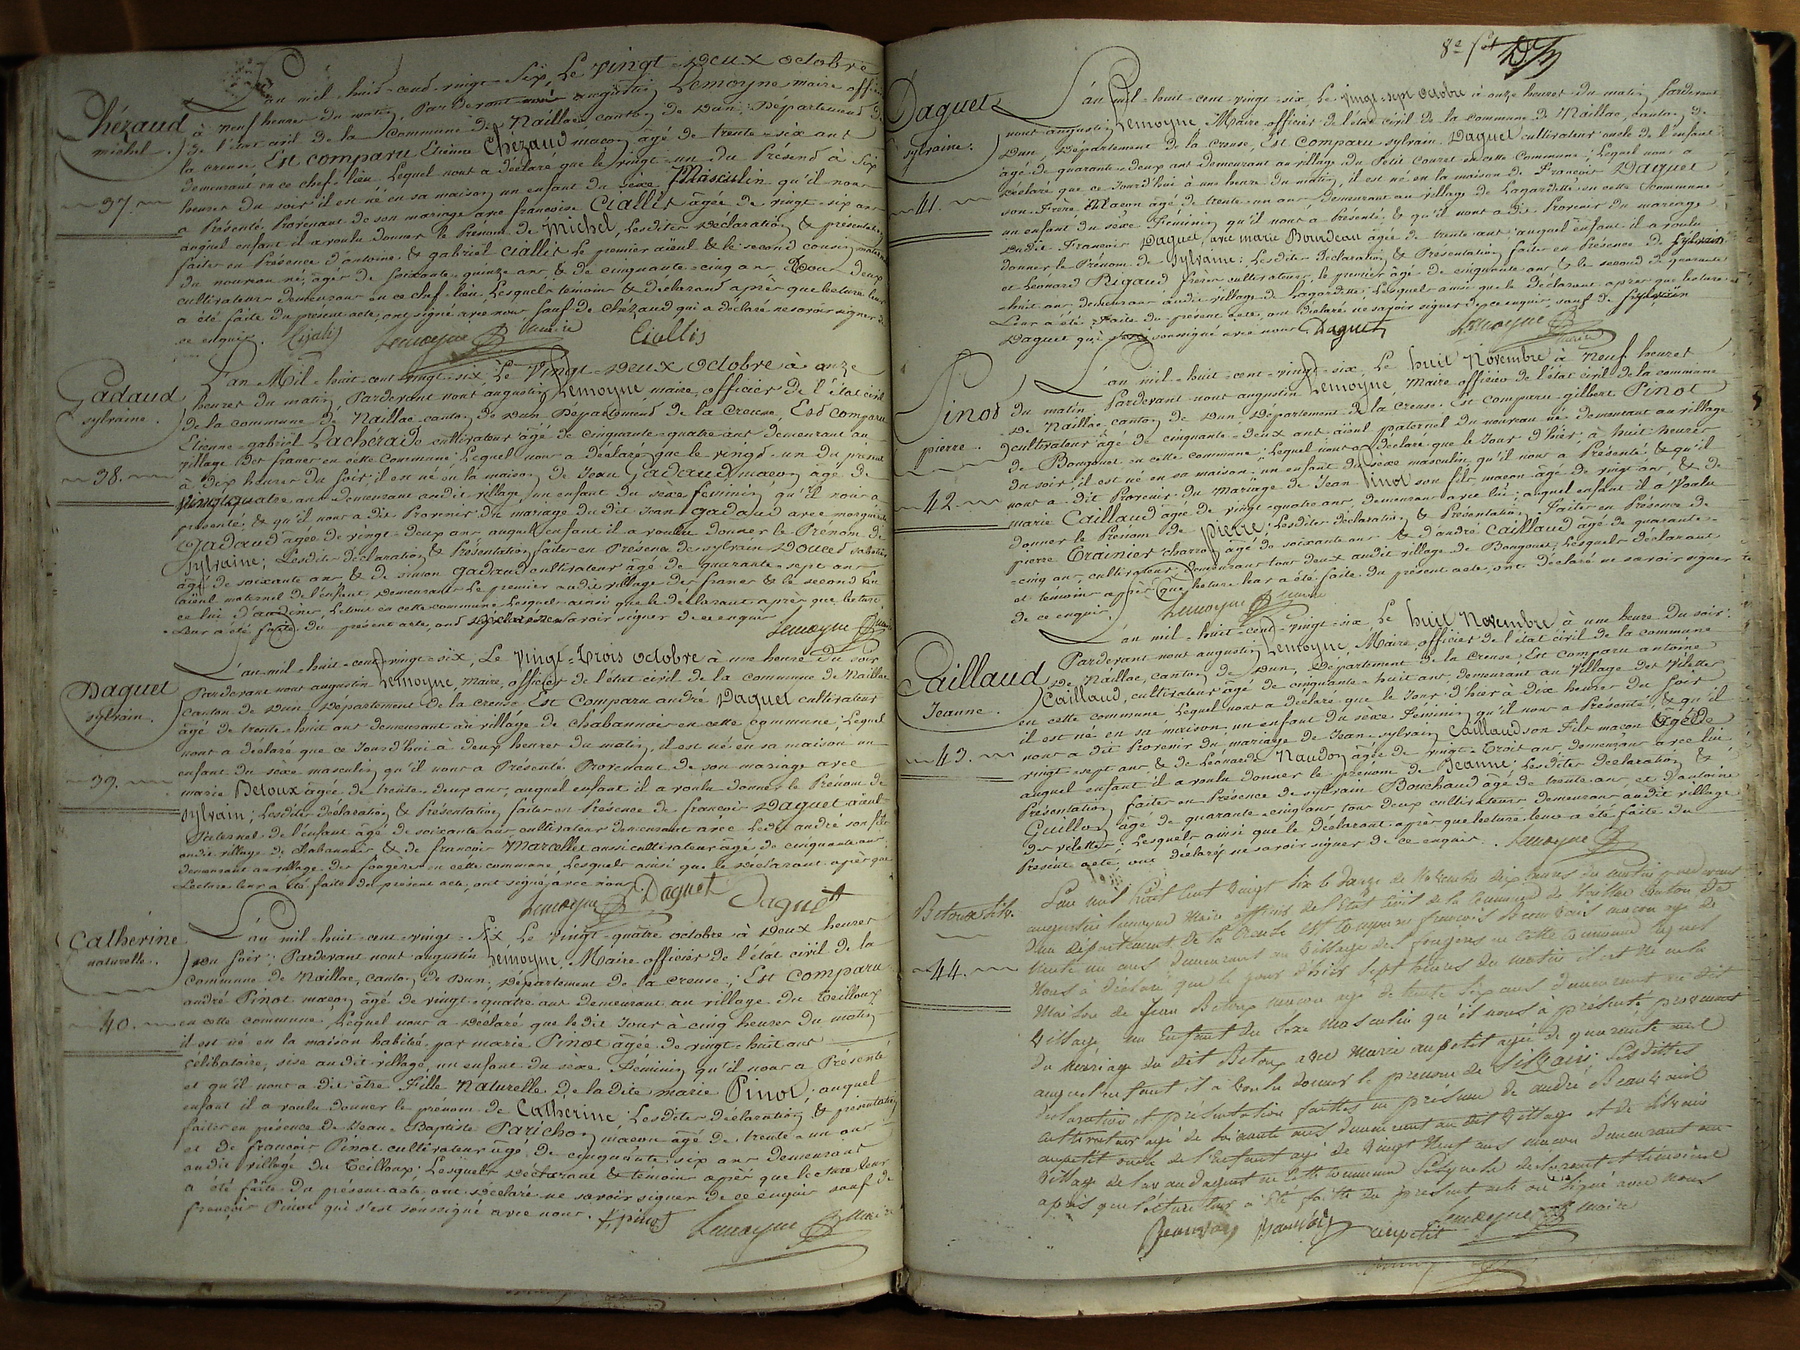 Chézaud
michel.
37.
L'an mil-huit-cent-vingt-six, Le vingt-deux octobre
à neuf heures du matin, Pardevant nous augustin Lemoyne maire officier
de l'état civil de la commune de Naillac canton de Dun, Département de
la creuse, Est comparu Etienne Chézaud maçon âgé de trente-six ans
demeurant en ce chef-lieu, Lequel nous a déclaré que le vingt-un du Présent à six
heures du soir il est né en sa maison un enfant du sèxe Masculin qu'il nous
a Présenté, Provenant de son mariage avec françoise Ciallis âgée de vingt-six ans
auquel enfant il a voulu donner le Prénom de Michel, Lesdites Déclaration & présentation
faites en Présence d'antoine & gabriel Ciallis Le premier aïeul & le second cousin
du nouveau né, âgés de soixante-quinze ans, & de cinquante-cinq ans, tous deux
cultivateurs demeurans en ce chef-lieu, Lesquels témoins & déclarant après que lecture leur
a été faite du présent acte, ont signé avec nous, sauf de Chézaud qui a déclaré ne savoir signer de
ce enquis. Cialis Lemoyne maire Ciallis
Gadaud
sylvaine.
38.
L'an Mil-huit-cent vingt-six, Le Vingt-deux octobre à onze
heures du matin, Pardevant nous augustin Lemoyne maire, officier de l'état civil
de la commune de Naillac canton de Dun, Département de la Creuse, Est comparu
Etienne-gabriel Lachérade cultivateur âgé de cinquante-quatre ans demeurant au
village Des franes en cette Commune; Lequel nous a déclaré que le vingt-un du présent
à Dix heures du soir il est né en la maison de Jean Gadaud maçon âgé de
vingt-quatre ans demeurant audit village, un enfant du sèxe féminin qu'il nous a
présenté & qu'il nous a dit Provenir du mariage dudit Jean Gadaud avec
Gadaud âgée de vingt-deux ans auquel enfant il a voulu donner le Prénom de
Sylvaine; Lesdites déclaration & Présentation faites en Présence de sylvain Doucet
âgé de soixante ans & de simon Gadaud cultivateur âgé de quarante-sept ans
aïeul maternel de l'enfant demeurans Le premier audit village des franes & le second en
ce lui en cette commune, Lesquels ainsi que le déclarant après que lecture
leur a été faite du présent acte, ont déclaré ne savoir signer de ce enquis Lemoyne
Daguet
sylvain.
39.
L'an mil-huit-cent-vingt-six, Le Vingt-trois octobre à une heure du soir
Pardevant nous augustin Lemoyne, maire, officier de l'état civil de la commune de Naillac
Canton de Dun, Département de la creuse Est Comparu andré Daguet cultivateur
âgé de trente-huit ans demeurant au village de chabannais en cette commune; Lequel
nous a déclaré que ce Jourd'hui à deux heures du matin, il est né en sa maison un
enfant du sèxe masculin qu'il nous a Présenté Provenant de son mariage avec
marie Betoux âgée de trente-deux ans, auquel enfant il a voulu donner le Prénom de
Sylvain; Lesdites déclaration & Présentation, faites en Présence de françois Daguet aïeul
Paternel de l'enfant âgé de soixante ans cultivateur demeurant avec Ledit andré son fils
audit village de chabannais & de françois Marcellet aussi cultivateur âgé de cinquante ans
demeurant au village des fougères en cette commune, Lesquels ainsi que le déclarant après que
Lecture leur a été faite du présent acte, ont signé avec nous.
Lemoyne Daguet Daguet
Catherine
naturelle.
40.
L'an mil-huit-cent-vingt-six, Le vingt-quatre octobre à Deux heures
du soir; Pardevant nous augustin Lemoyne, Maire officier de l'état civil de la
Commune de Naillac, Canton de Dun, Département de la creuse; Est comparu
andré Pinot maçon âgé de vingt-quatre ans demeurant au village du teilloux
en cette commune, Lequel nous a déclaré que le dit Jour à cinq heures du matin
il est né en la maison habitée par marie Pinot âgée de vingt-huit ans
célibataire, sise audit village, un enfant du sèxe féminin qu'il nous a Présenté
et qu'il nous a dit être fille Naturelle de la dite marie Pinot, auquel
enfant il a voulu donner le prénom de Catherine; Lesdites déclaration & présentation
faites en présence de Jean-Baptiste Parichon maçon âgé de trente-un ans
et de françois Pinot cultivateur âgé de cinquante six ans demeurans
audit village du teilloux; Lesquels déclarant & témoins après que lecture leur
a été faite du présent acte, ont déclaré ne savoir signer de ce enquis sauf de
françois Pinot qui s'est soussigné avec nous. f pinot Lemoyne Maire
Daguet
sylvaine.
41.
L'an mil-huit-cent-vingt-six, Le vingt-sept octobre à onze heures du matin, Pardevant
nous augustin Lemoyne Maire officier de l'état civil de la commune de Naillac, Canton de
Dun, Département de la creuse, Est Comparu sylvain Daguet cultivateur oncle de l'enfant
âgé de quarante-deux ans demeurant au village du Petit Couret en cette Commune; Lequel nous a
déclaré que ce Jourd'hui à une heure du matin, il est né en la maison de François Daguet
son Frère, Maçon âgé de trente-un ans, demeurant au village de Lagardette en cette Commune
un enfant du sèxe Féminin qu'il nous a Présenté, & qu'il nous a dit Provenir du mariage
dudit François Daguet, avec marie Bourdeau âgée de trente ans; auquel enfant il a voulu
donner le Prénom de Sylvaine; Lesdites déclaration & Présentation faites en Présence de sylvain
et Leonard Rigaud frères cultivateurs, le premier âgé de cinquante ans, & le second de quarante
-huit ans, demeurans audit village de Lagardette; Lesquels ainsi que le Déclarant après que lecture
Leur a été faite du présent acte, ont déclaré ne savoir signer de ce enquis, sauf de sylvain
Daguet qui s'est soussigné avec nous Daguet Lemoyne maire
Pinot
pierre.
42
L'an mil-huit-cent-vingt-six, Le huit Novembre à Neuf heures
du matin. Pardevant nous augustin Lemoyne, Maire officier de l'état civil de la commune
De Naillac, canton de Dun, Département de la creuse. Est Comparu gilbert Pinot
cultivateur âgé de cinquante-deux ans aïeul paternel du nouveau né, demeurant au village
de Bongouet en cette commune; Lequel nous a déclaré que le Jour d'hier, à huit heures
du soir il est né en sa maison un enfant du sèxe masculin qu'il nous a Présenté & qu'il
nous a dit Provenir du Mariage de Jean Pinot son fils, maçon âgé de vingt ans, & de
marie Caillaud âgée de vingt-quatre ans, demeurans avec lui; auquel enfant il a Voulu
donner le Prénom de pierre; Lesdites déclaration & Présentation Faites en Présence de
pierre Trainier charron âgé de soixante ans & d'andré Caillaud âgé de quarante-
-cinq ans, cultivateur demeurans tous deux audit village de Bongouet; Lesquels déclarant
et témoins après que Lecture leur a été faite du présent acte, ont déclaré ne savoir signer
de ce enquis. Lemoyne maire
Caillaud
Jeanne.
43.
L'an mil-huit-cent-vingt-six, Le huit Novembre à une heure du soir.
Pardevant nous augustin Lemoyne, Maire officier de l'état civil de la commune
de Naillac, canton de Dun, Département de la creuse, Est Comparu antoine
Caillaud, cultivateur âgé de cinquante-huit ans, demeurant au Village des Vilettes
en cette commune, Lequel nous a déclaré que le Jour d'hier à dix heures du soir
il est né en sa maison, un enfant du sexe Féminin qu'il nous a Présenté, & qu'il
nous a dit Provenir du mariage de Jean-sylvain Caillaud son Fils maçon âgé de
vingt-sept ans & de Léonarde Naudon âgée de vingt-trois ans, demeurans avec lui
auquel enfant il a voulu donner le prénom de Jeanne; Lesdites déclaration &
Présentation faites en Présence de sylvain Bouchaud âgé de trente ans et d'antoine
Guillon âgé de quarante-cinq ans tous deux cultivateurs demeurans audit village
des vilettes; Lesquels ainsi que le déclarant après que lecture leur a été faite du
Présent acte, ont déclaré ne savoir signer de ce enquis. Lemoyne
Betoux silv.
44.
L'an mil huit Cent vingt six le douze de Novembre dix heures du matin pardevant
augustin Lemoyne Maire officier de l'état Civil de la Commune de Naillac Canton de
Dun département de la Creuse est Comparu françois Beauvais maçon âgé de
trente un ans demeurant au Village des fougères en cette Commune lequel
Nous a déclaré que le jour d'hier sept heures du matin il est né en la
Maison de jean Betoux maçon agé de trente six ans demeurant au dit
Village un Enfant du Sexe Masculin qu'il nous a présenté provenant
du mariage du dit Betoux avec Marie aupetit agée de quarante
auquel enfant il a voulu donner le prenom de Silvain. Lesdittes
déclaration et présentation faittes en présence de andré Beauvais
Cultivateur agé de soixante ans demeurant au dit Village et de Silvain
aupetit oncle de l'Enfant agé de vingt Neuf ans maçon demeurant au
Village de en Cette Commune Lesquels déclarant et témoins
après que lecture leur a été faitte du présent acte ont signé avec nous
Beauvais Beauvais aupetit Lemoyne maire